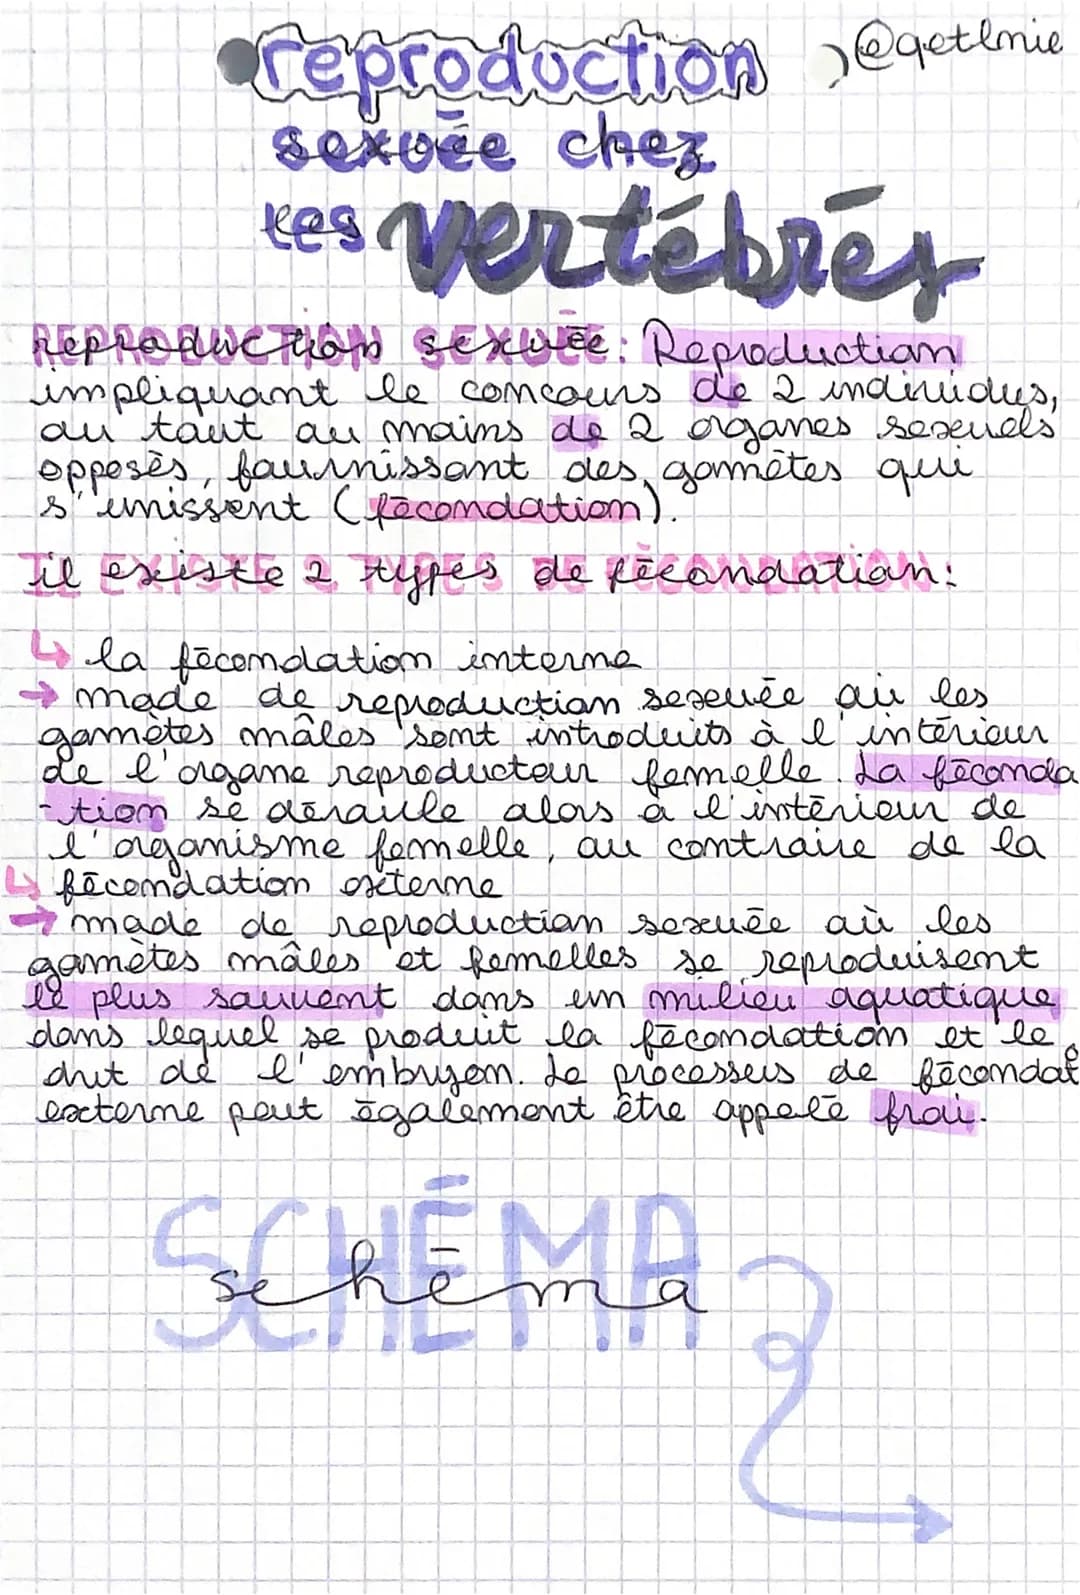 reproduction @qetlnie
sexuée chez
les vertébrés
REPRODUCTION SEXUÉE: Reproduction
impliquant le concours de 2 individus,
ou tout au moins de 2 organes sexuels
opposés, fournissant des gamètes qui
s'unissent (fécondation).
Il EXISTE 2 TYPES DE FÉCONDATION:
↳ la fécondation interne
→ mode de reproduction sexuée où les
gamètes mâles sont introduits à l'intérieur
de l'organe reproducteur femelle. La féconda
-tion se déroule alors à l'intérieur de
l'organisme femelle, au contraire de la
↳ fécondation externe
→ mode de reproduction sexuée où les
gamètes mâles et femelles se reproduisent
le plus souvent dans un milieu aquatique
dans lequel se produit la fécondation et le
dvt de l'embryon. Le processus de fécondat
externe peut également être appelé frai.
SCHÉMA
schéma